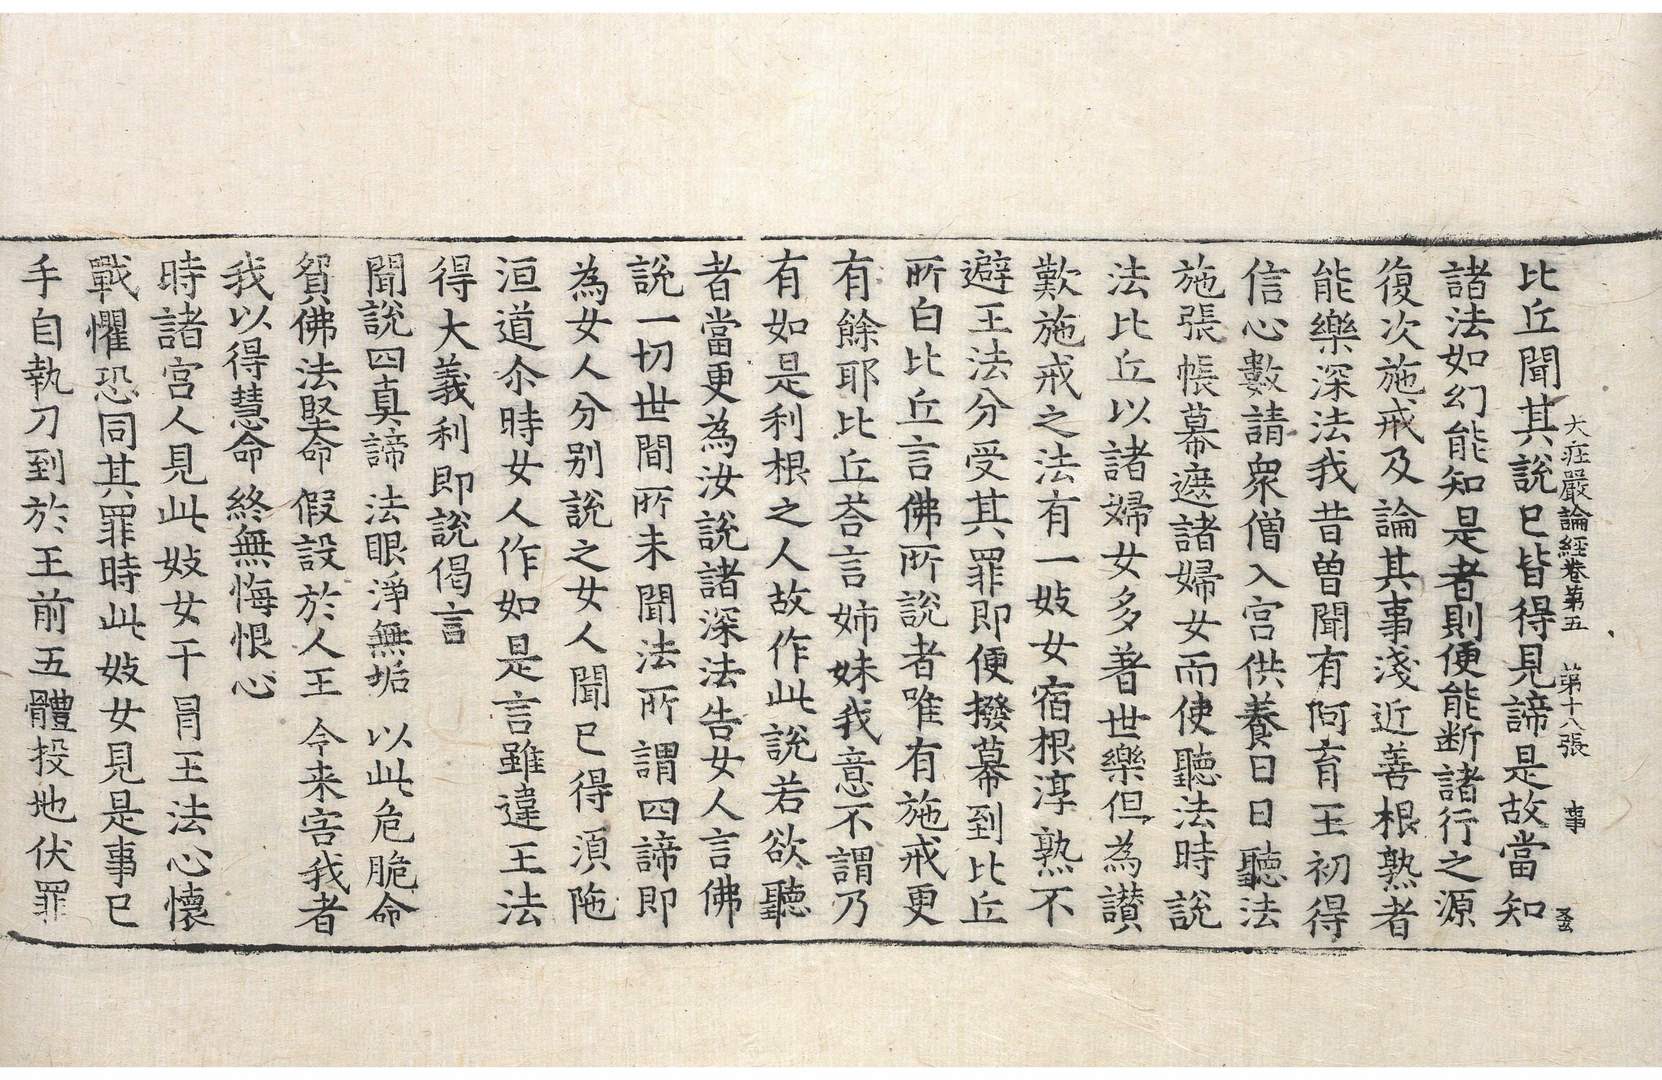 大莊嚴論經卷第五　第十八張　事
比丘聞其說已皆得見諦是故當知
諸法如幻能知是者則便能断諸行之源
復次施戒及論其事淺近善根熟者
能樂深法我昔曾聞有阿育王初得
信心數請衆僧入宮供養日日聽法
施張帳幕遮諸婦女而使聽法時說
法比丘以諸婦女多著世樂但為讃
歎施戒之法有一妓女宿根淳熟不
避王法分受其罪即便撥幕到比丘
所白比丘言佛所說者唯有施戒更
有餘耶比丘荅言姉妹我意不謂乃
有如是利根之人故作此說若欲聽
者當更為汝說諸深法告女人言佛
說一切世間所未聞法所謂四諦即
為女人分別說之女人聞已得湏陁
洹道尒時女人作如是言雖違王法
得大義利即說偈言
聞說四真諦　法眼淨無垢　以此危脆命
貿佛法堅命　假設於人王　今来害我者
我以得慧命　終無悔恨心
時諸宮人見此妓女干冐王法心懷
戰懼恐同其罪時此妓女見是事已
手自執刀到於王前五體投地伏罪